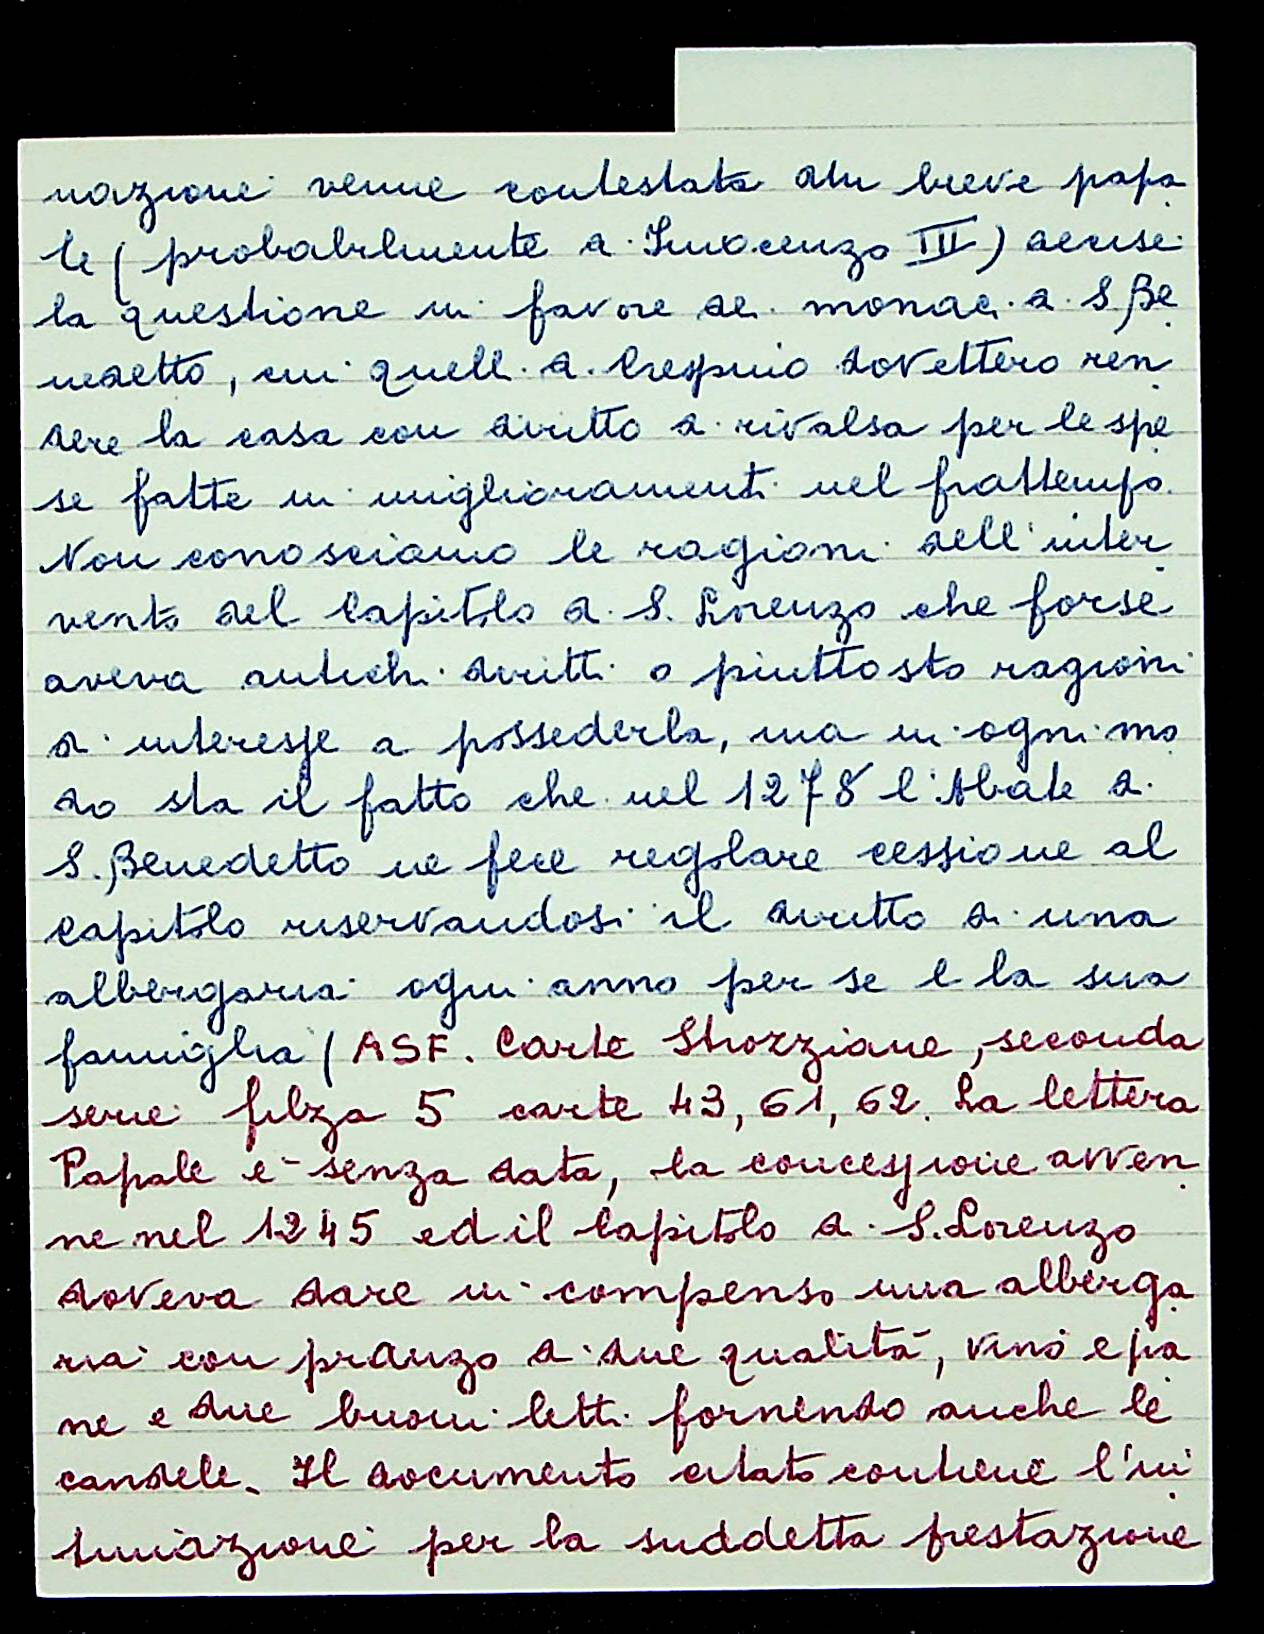 nazione venne contestata. Un breve papa
le (probabilmente di Innocenzo III) decise
la questione in favore dei monaci di S. Be
nedetto, cui quelli di Crespino dovettero ren
dere la casa con diritto di rivalsa per le spe
se fatte in miglioramenti nel frattempo.
Non conosciamo le ragioni dell'inter
vento del Capitolo di S. Lorenzo che forse
aveva antichi diritti o piuttosto ragioni
di interesse a possederla, ma in ogni mo
do sta il fatto che nel 1278 l'Abate di
S. Benedetto ne fece regolare cessione al
Capitolo riservandosi il diritto di una
albergaria ogni anno per se e la sua
famiglia (ASF. Carte Strozziane, seconda
serie filza 5 carte 43, 61, 62. La lettera
Papale è senza data, la concessione avven
ne nel 1245 ed il Capitolo di S. Lorenzo
doveva dare in compenso una alberga
ria con pranzo di due qualità, vino e pa
ne e due buoni letti fornendo anche le
candele. Il documento citato contiene l'in
timazione per la suddetta prestazione